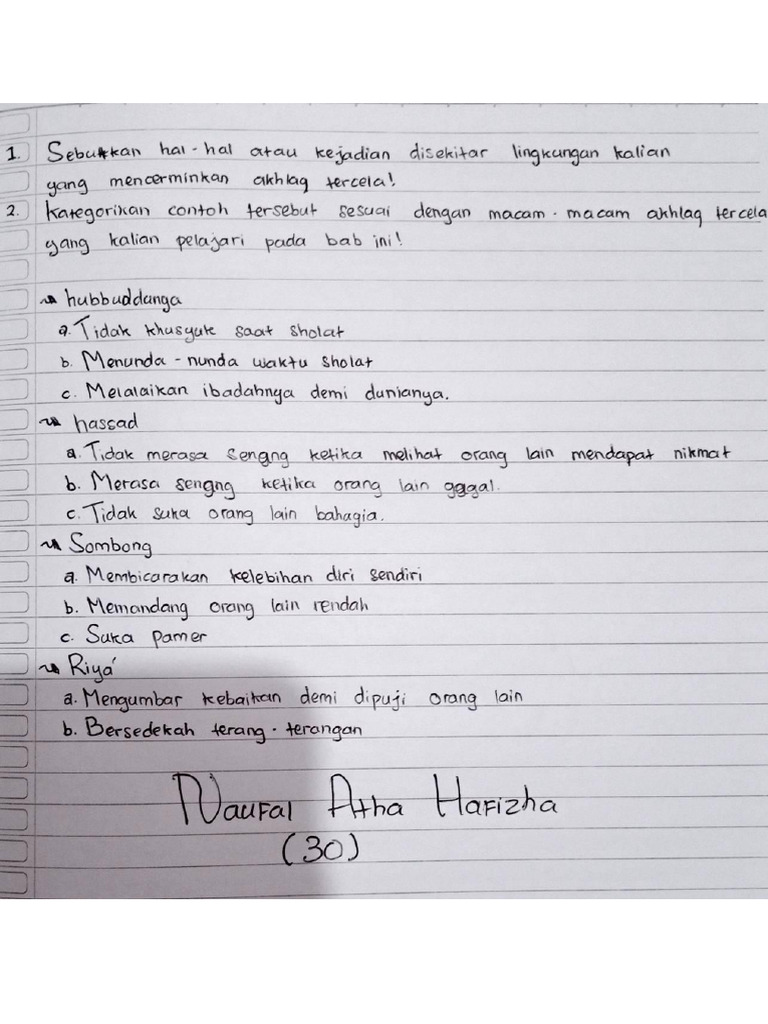 1. Sebutkan hal-hal atau kejadian disekitar lingkungan kalian
yang mencerminkan akhlaq tercela!
2. Kategorikan contoh tersebut sesuai dengan macam-macam akhlaq tercela
yang kalian pelajari pada bab ini!
hubbuddunga
a. Tidak khusyuk saat sholat
b. Menunda-nunda waktu sholat
c. Melalaikan ibadahnya demi dunianya.
hassad
a. Tidak merasa sengng ketika melihat orang lain mendapat nikmat
b. Merasa sengng ketika orang lain gggal.
c. Tidak suka orang lain bahagia.
Sombong
a. Membicarakan kelebihan diri sendiri
b. Memandang orang lain rendah
c. Suka pamer
Riya'
a. Mengumbar kebaikan demi dipuji orang lain
b. Bersedekah terang-terangan
Naufal Atha Hafizha
(30)